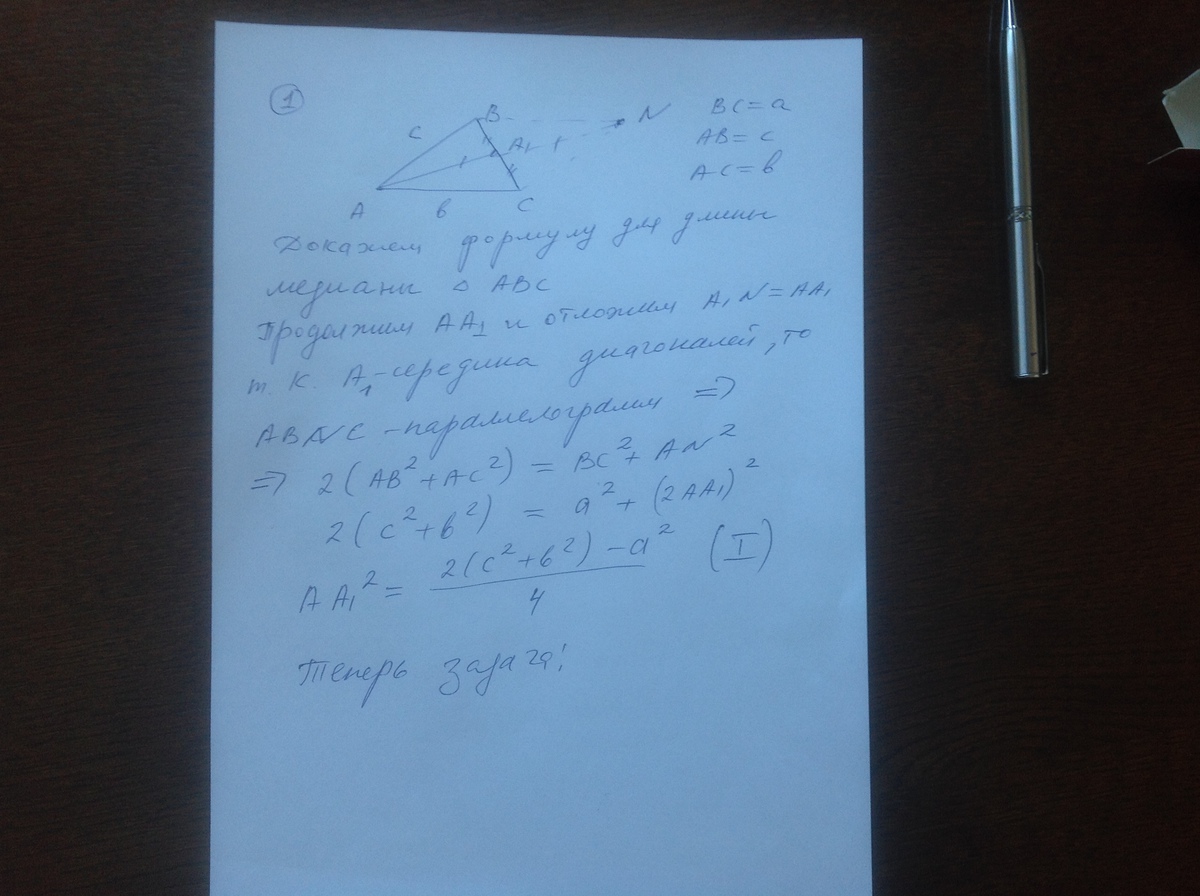 1
B N BC = a
c A₁ AB = c
AC = b
A b C
Докажем формулу для длины
медианы △ ABC
Продолжим AA₁ и отложим A₁N = AA₁
т. к. A₁-середина диагоналей, то
ABNC - параллелограмм ⇒
⇒ 2(AB² + AC²) = BC² + AN²
2(c² + b²) = a² + (2AA₁)²
AA₁² = (2(c² + b²) - a²)/4 (I)
Теперь задача!